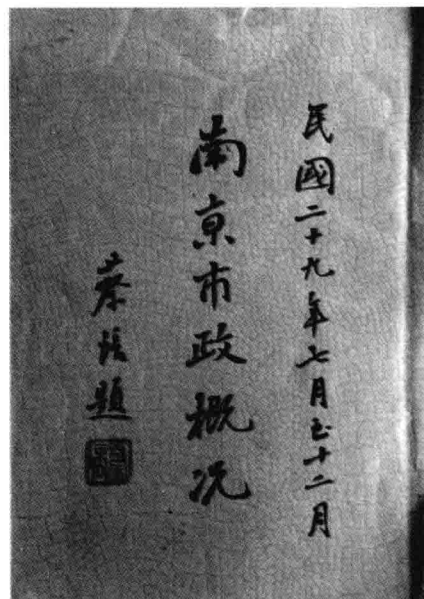 民國二十九年七月至十二月
南京市政概況
蔡培題